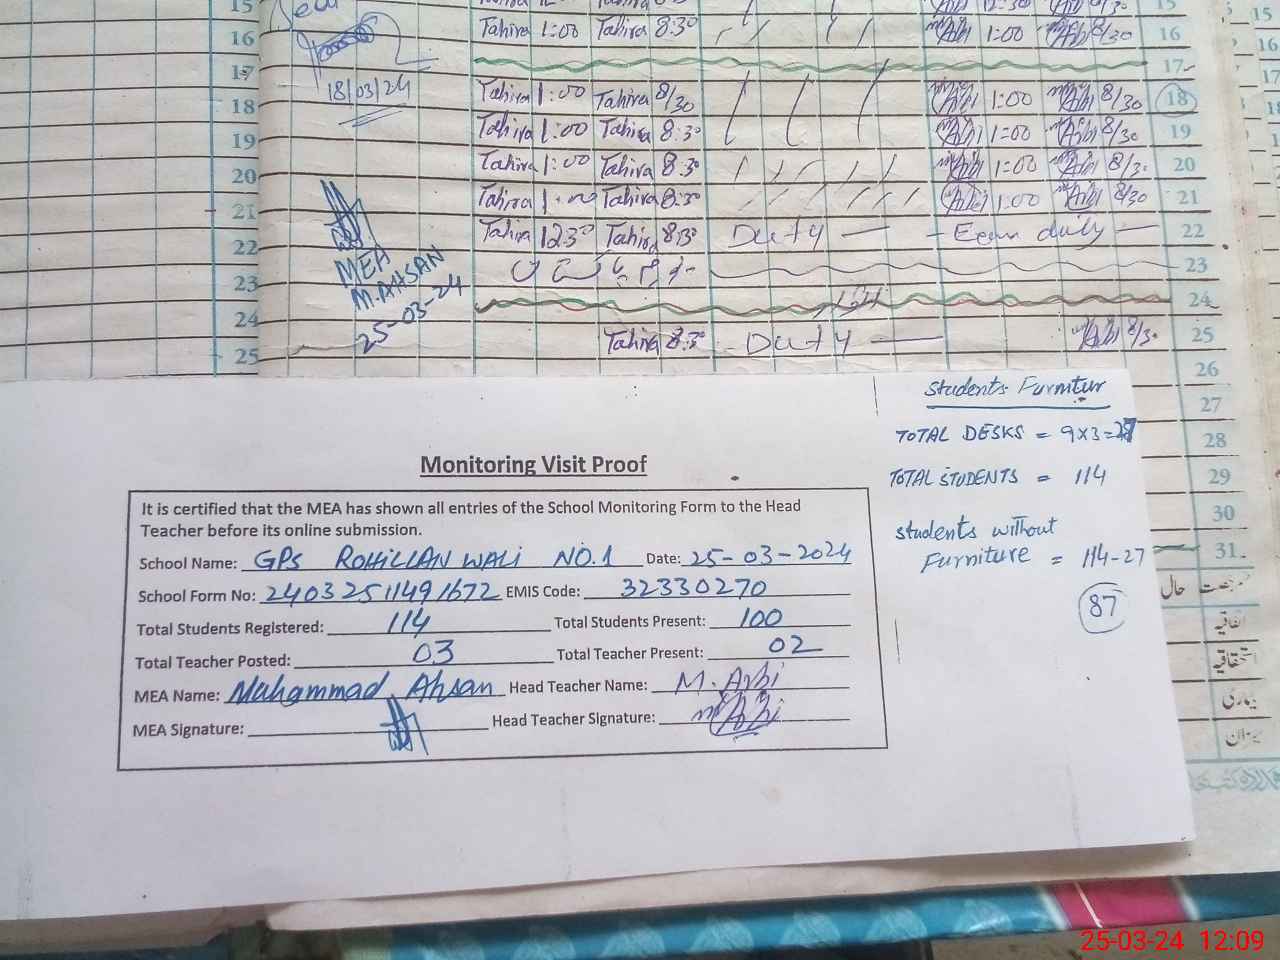 15
16 Tahira 1:00 Tahira 8:30 1:00 8/30 16
17 17
18/03/24
18 Tahira 1:00 Tahira 8/30 1:00 8/30 18
19 Tahira 1:00 Tahira 8:30 1:00 8/30 19
20 Tahira 1:00 Tahira 8:30 1:00 8/30 20
21 Tahira Tahira 8:30 1:00 8/30 21
22 Tahira 12:30 Tahira 8:30 Duty Exam duty 22
23 23
24 24
25 Tahira 8:30 Duty 8/30 25
MEA
M.AHSAN
25-03-24
26
27
28
29
30
31
Students Furnitur
TOTAL DESKS = 9x3=27
TOTAL STUDENTS = 114
students without
Furniture = 114-27
87
Monitoring Visit Proof
It is certified that the MEA has shown all entries of the School Monitoring Form to the Head
Teacher before its online submission.
School Name: GPS ROHILLAN WALI NO.1 Date: 25-03-2024
School Form No: 24032511491672 EMIS Code: 32330270
Total Students Registered: 114 Total Students Present: 100
Total Teacher Posted: 03 Total Teacher Present: 02
MEA Name: Muhammad Ahsan Head Teacher Name: M. Arbi
MEA Signature: Head Teacher Signature:
حال
اتفاقیہ
استحقاقیہ
بیماری
میزان
25-03-24 12:09